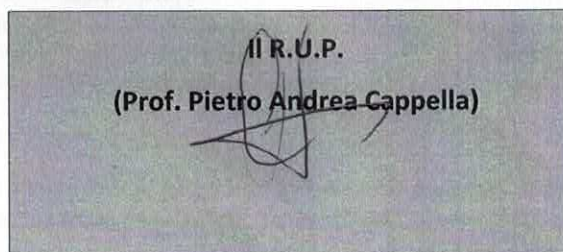 Il R.U.P.
(Prof. Pietro Andrea Cappella)